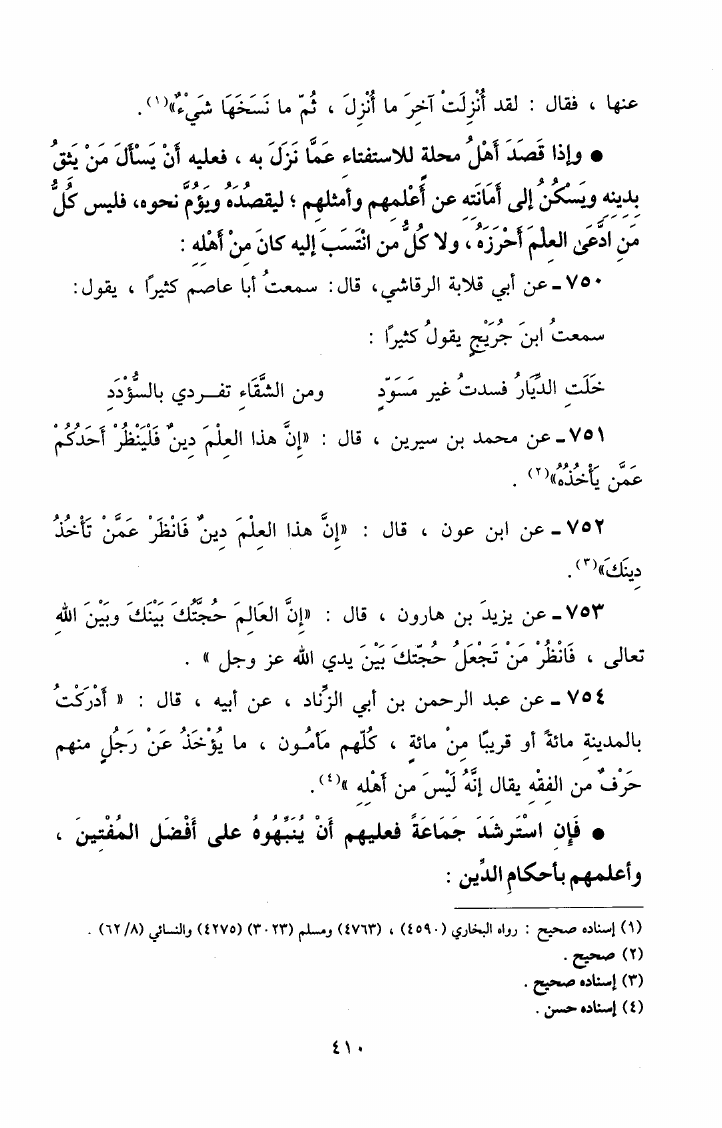 عنها ، فقال : لقد أُنْزِلَتْ آخِرَ ما أُنْزِلَ ، ثُمّ ما نَسَخَهَا شَيْءٌ»(١).
● وإذا قَصَدَ أَهْلُ محلة للاستفتاء عَمَّا نَزَلَ به ، فعليه أنْ يَسْأَلَ مَنْ يَثِقُ
بِدِينِهِ ويَسْكُنُ إلى أمَانَتِهِ عن أَعْلمِهِم وأمثلهم ؛ ليقصُدَهُ ويَؤُمَّ نحوه، فليس كُلُّ
مَنِ ادَّعَى العِلْمَ أَحْرَزَهُ ، ولا كلُّ من انْتَسَبَ إليه كانَ مِنْ أَهْلِهِ :
٧٥٠ ـ عن أبي قلابة الرقاشي، قال: سمعتُ أبا عاصم كثيرًا ، يقول:
سمعتُ ابنَ جُرَيْجٍ يقولُ كثيرًا :
خَلَتِ الدِّيَارُ فسدتُ غير مَسَوّدٍ ومن الشَّقَاءِ تفـردي بالسُّؤْدَدِ
٧٥١ ـ عن محمد بن سيرين ، قال : «إنَّ هذا العِلْمَ دِينٌ فَلْيَنْظُرْ أَحَدُكُمْ
عَمَّن يَأْخُذُهُ»(٢) .
٧٥٢ ـ عن ابن عون ، قال : «إنَّ هذا العِلْمَ دِينٌ فَانْظَرْ عَمَّنْ تَأْخُذُ
دِينَكَ»(٣).
٧٥٣ ـ عن يزيدَ بن هارون ، قال : «إنَّ العَالِمَ حُجَّتُكَ بَيْنَكَ وبَيْنَ اللهِ
تعالى ، فَانْظُرْ مَنْ تَجْعَلُ حُجّتكَ بَيْنَ يدي الله عز وجل » .
٧٥٤ ـ عن عبد الرحمن بن أبي الزِّناد ، عن أبيه ، قال : « أَدْرَكْتُ
بالمدينةِ مائةً أو قريبًا مِنْ مائةٍ ، كُلّهم مَأمُـون ، ما يُؤْخَذُ عَنْ رَجُلٍ منهم
حَرْفٌ من الفِقْهِ يقال إنَّهُ لَيْسَ من أَهْلِهِ »(٤).
● فَإِنِ اسْتَرشَدَ جَمَاعَةً فعليهم أنْ يُنَبِّهُوهُ على أَفْضَلِ المُفْتِينَ ،
وأعلمهم بأحكامِ الدِّينِ :
(١) إسناده صحيح : رواه البخاري (٤٥٩٠) ، (٤٧٦٣) ومسلم (٣٠٢٣) (٤٢٧٥) والنسائي (٦٢/٨) .
(٢) صحيح .
(٣) إسناده صحيح .
(٤) إسناده حسن .
٤١٠